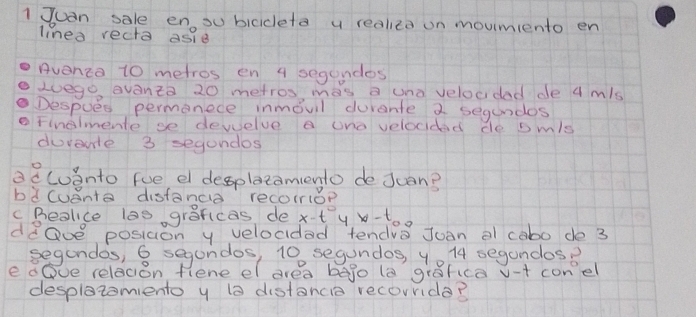 1 Juan sale en su bicicleta y realiza un movimiento en
linea recta asi:
• Avanza 10 metros en 4 segundos
• Luego avanza 20 metros más a una velocidad de 4 m/s
• Después permanece inmóvil durante 2 segundos
• Finalmente se devuelve a una velocidad de 5 m/s
durante 3 segundos
a ¿Cuánto fue el desplazamiento de Juan?
b ¿Cuánta distancia recorrió?
c Realice las gráficas de x-t y v-t
d ¿Qué posición y velocidad tendrá Juan al cabo de 3
segundos, 6 segundos, 10 segundos, y 14 segundos?
e ¿Que relación tiene el área bajo la gráfica v-t con el
desplazamiento y la distancia recorrida?